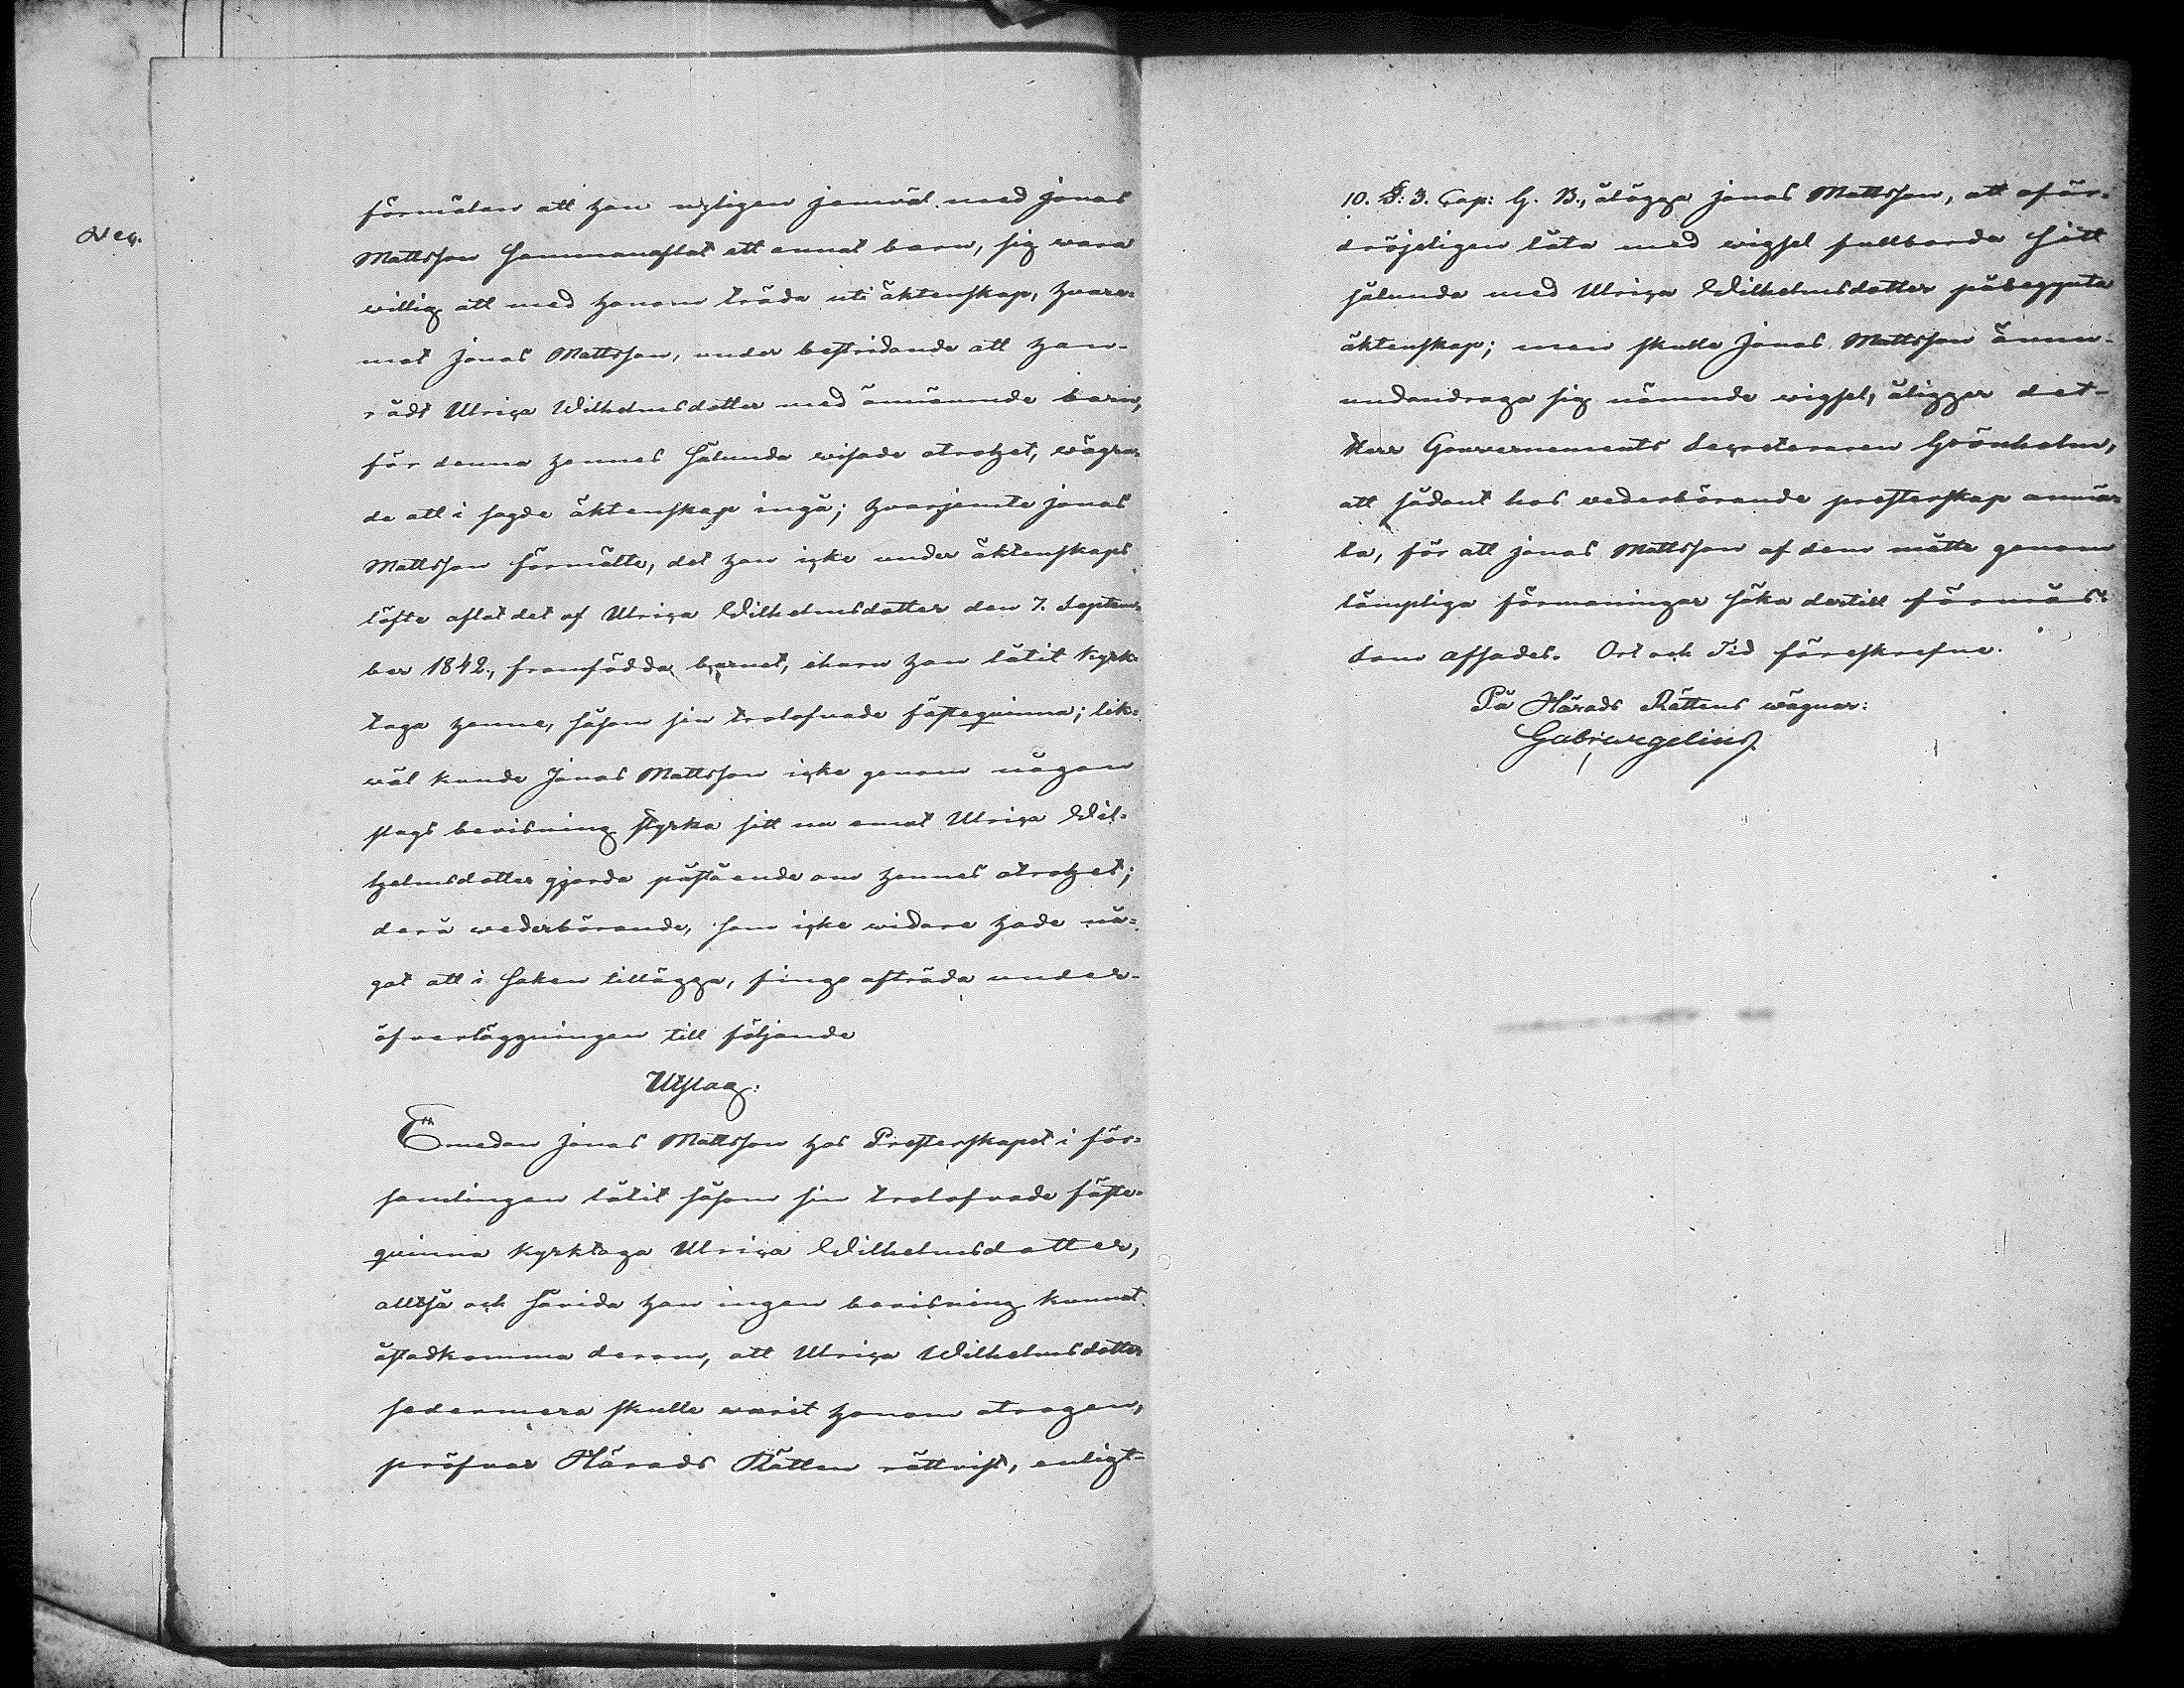 förmälan att hon nyligen jemväl med Jonas
Mattsson sammanaflat ett annat barn, sig wara
willig att med honom träda uti äktenskap, hvare-
mot Jonas Mattsson, under bestridande att han-
rådt Ulrica Wilhelmsdotter med omnämnde barn,
för denna hennes sålunda wisade otrohet, wägra-
de att i sagde äktenskap ingå; hvarjemte Jonas
Mattsson förmälte, det han icke under äktenskaps
löfte aflat det af Ulrica Wilhelmsdotter den 7. Septem-
ber 1842., framfödda barnet, ehuru han låtit kyrk-
taga henne, såsom sin trolofwade fästeqwinna; lik-
wäl kunde Jonas Mattsson icke genom någon
slags bevisning styrka sitt nu emot Ulrica Wil-
helmsdotter gjorda påstående om hennes otrohet;
derå wederbörande, som icke widare hade nå-
got att i saken tillägga, fingo afträda under-
öfverläggningen till följande
Utslag:
Emedan Jonas Mattsson hos Presterskapet i för-
samlingen låtit såsom sin trolofwade fäste-
qwinna kyrktaga Ulrica Wilhelmsdotter,
alltså och såvida han ingen bevisning kunnat
åstadkomma derom, att Ulrica Wilhelmsdotter
sedermera skulle warit honom otrogen,
pröfwar Härads Rätten rättvist, enligt
10. §: 3. Cap: G. B., ålägga Jonas Mattsson, att oför-
dröjeligen låta med wigsel fullborda sitt
sålunda med Ulrica Wilhelmsdotter påbegynta
äktenskap; men skulle Jonas Mattsson ännu-
undandraga sig nämnde wigsel, åligger det-
Herr Gouvernements Secreteraren Grönholm,
att sådant hos wederbörande presterskap anmä-
la, för att Jonas Mattsson af dem måtte genom
lämpliga förmaningar söka dertill förmås.
Som afsades. Ort och Tid föreskrefne.
På Härads Rättens wägnar: